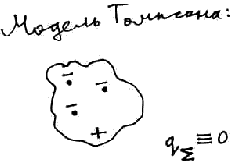 Модель Томпсона:
–
–
–
+
q_Σ ≡ 0